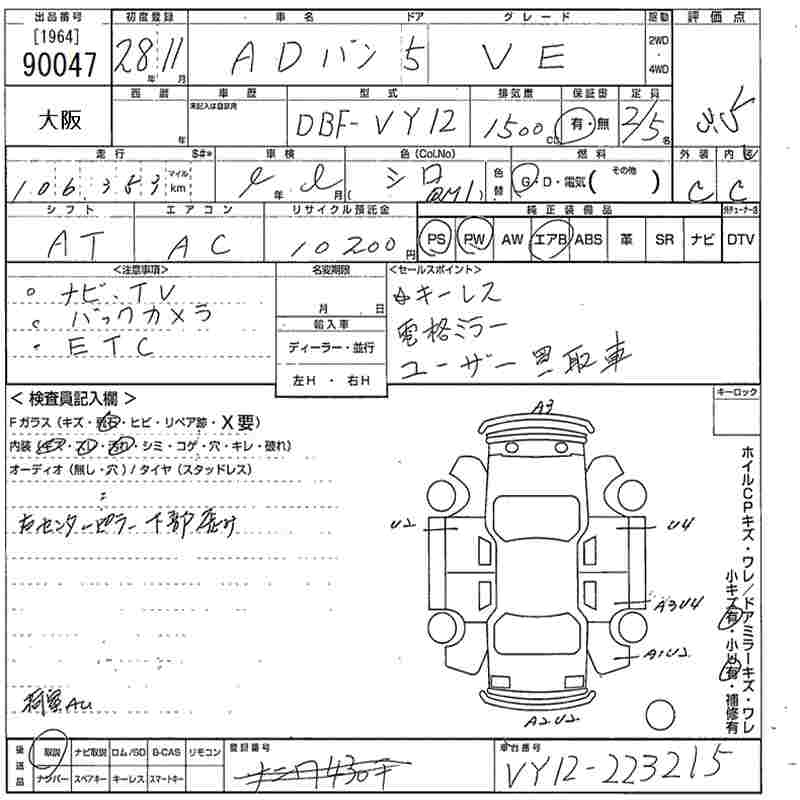 出品番号 初度登録 車名 ドア グレード 駆動 評価点
[1964]
90047 28年 11月 ADバン 5 VE 2WD・4WD
大阪 西暦 年 車歴 未記入は自家用 型式 排気量 保証書 定員
DBF-VY12 1500cc 有・無 2/5名
走行 S#* 車検 色(Col.No) 色替 燃料 外装 内装
106,353 マイル km 年 月 シロ G・D・電気(その他) C C
シフト エアコン リサイクル預託金 純正装備品
AT AC 10200円 PS PW AW エアB ABS 革 SR ナビ DTV
<注意事項> 名変期限 <セールスポイント>
ナビ、TV 月 日 キーレス
バックカメラ 輸入車 電格ミラー
ETC ディーラー・並行 ユーザー買取車
左H・右H
<検査員記入欄> キーロック
Fガラス(キズ・ ・ヒビ・リペア跡・X要)
内装( ・ ・ ・シミ・コゲ・穴・キレ・破れ)
オーディオ(無し・穴)/タイヤ(スタッドレス)
右センターピラー下部
A3
U2 U4
A3U4
A1U2
A2U2
ホイルCPキズ・ワレ/ドアミラーキズ・ワレ
小キズ有・小U有・補修有
後送品 取説 ナビ取説 ロム/SD B-CAS リモコン 登録番号 車台番号
ナンバー スペアキー キーレス スマートキー VY12-223215